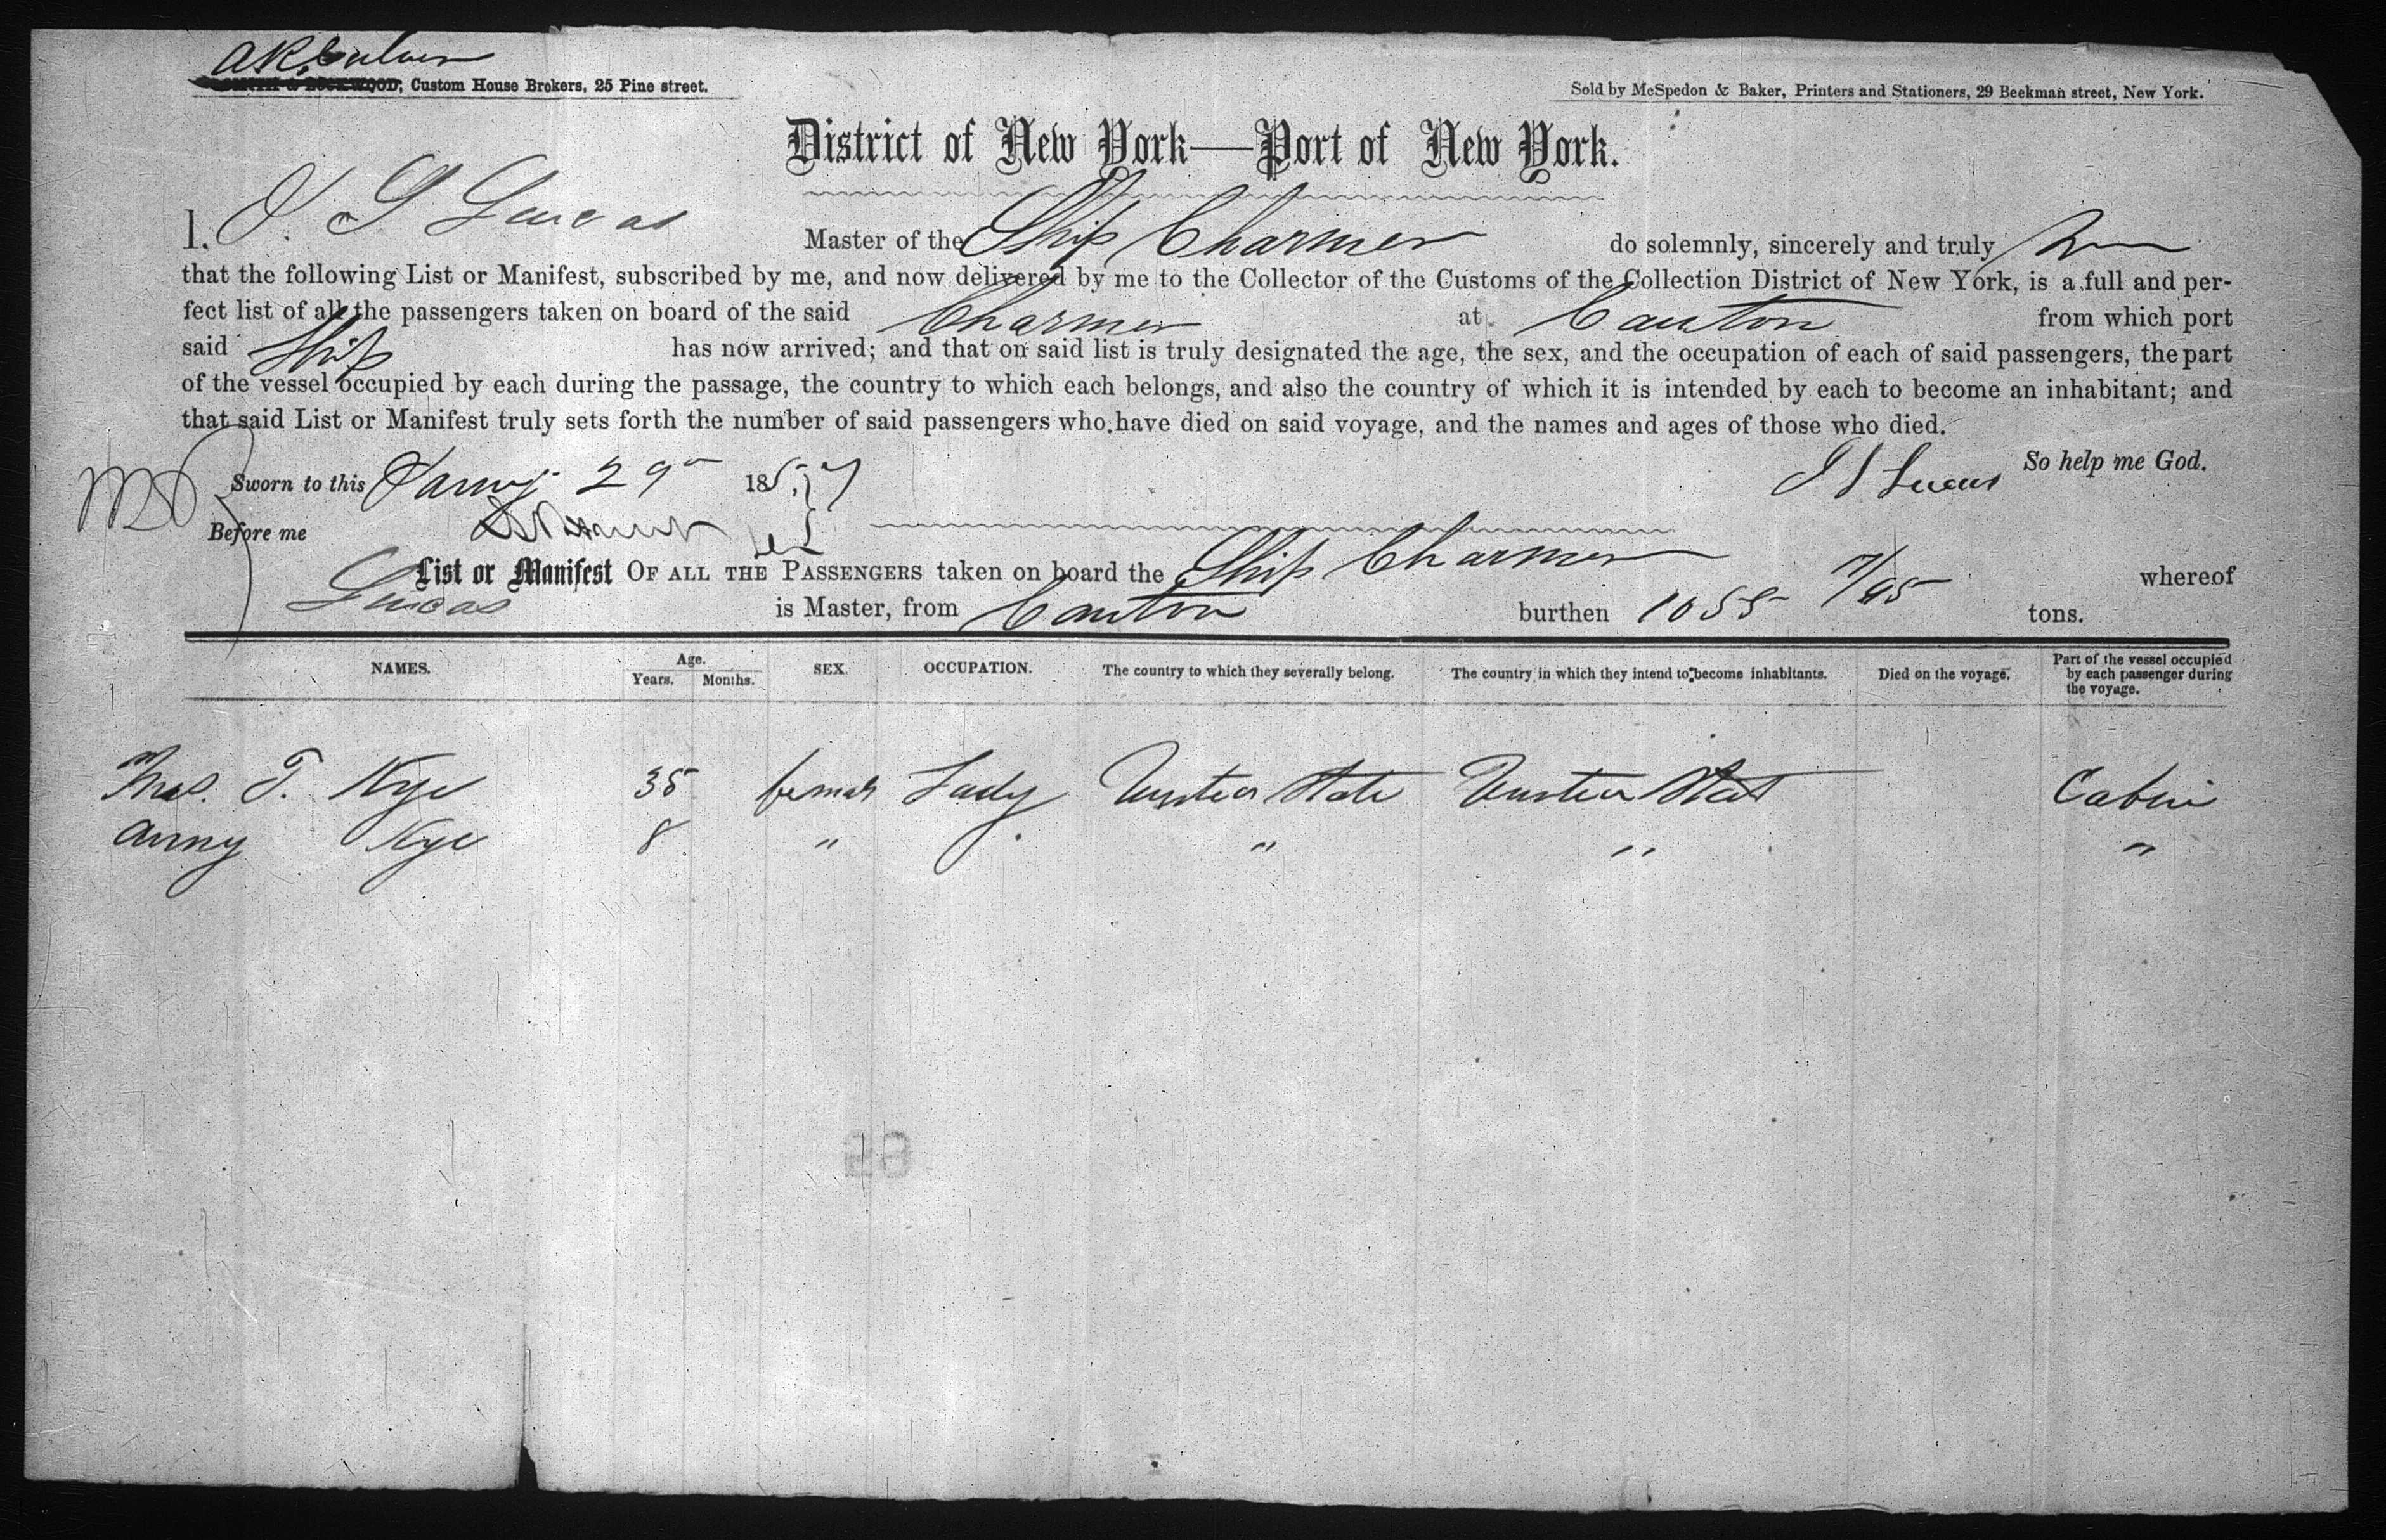 A R Culver
LOCKWOOD, Custom House Brokers, 25 Pine street.
Sold by McSpedon & Baker, Printers and Stationers, 29 Beekman street, New York.
District of New York—Port of New York.
I, I. S Lucas Master of the Ship Charmer do solemnly, sincerely and truly
that the following List or Manifest, subscribed by me, and now delivered by me to the Collector of the Customs of the Collection District of New York, is a full and per-
fect list of all the passengers taken on board of the said Charmer at Canton from which port
said Ship has now arrived; and that on said list is truly designated the age, the sex, and the occupation of each of said passengers, the part
of the vessel occupied by each during the passage, the country to which each belongs, and also the country of which it is intended by each to become an inhabitant; and
that said List or Manifest truly sets forth the number of said passengers who have died on said voyage, and the names and ages of those who died.
So help me God.
Sworn to this Jany 29 1857 I S Lucas
Before me
List or Manifest OF ALL THE PASSENGERS taken on board the Ship Charmer whereof
Lucas is Master, from Canton burthen 1055 7/95 tons.
NAMES. Age. Years. Months. SEX. OCCUPATION. The country to which they severally belong. The country in which they intend to become inhabitants. Died on the voyage. Part of the vessel occupied by each passenger during the voyage.
Mrs. T. Nye 35 female Lady United State United Stat Cabin
Anny Nye 8 " " " "